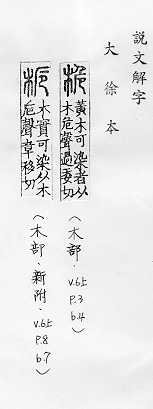 說文解字
大徐本
桅
黃木可染者从
木危聲過委切
（木部．v.6上 P.3 b.4）
梔
木實可染从木
巵聲章移切
（木部．新附．v.6上 P.8 b.7）